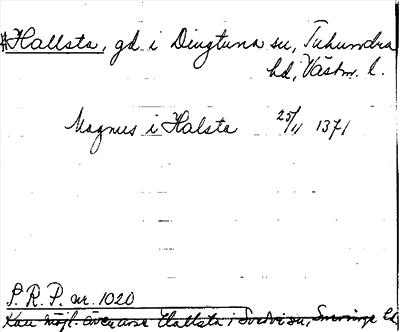 Hallsta, gd i Dingtuna sn, Tuhundra
hd, Västm. l.
Magnus i Halsta 25/11 1371
S. R. P. nr. 1020
Kan möjl. även avse Hallsta i Svedvi sn, Snevringe hd